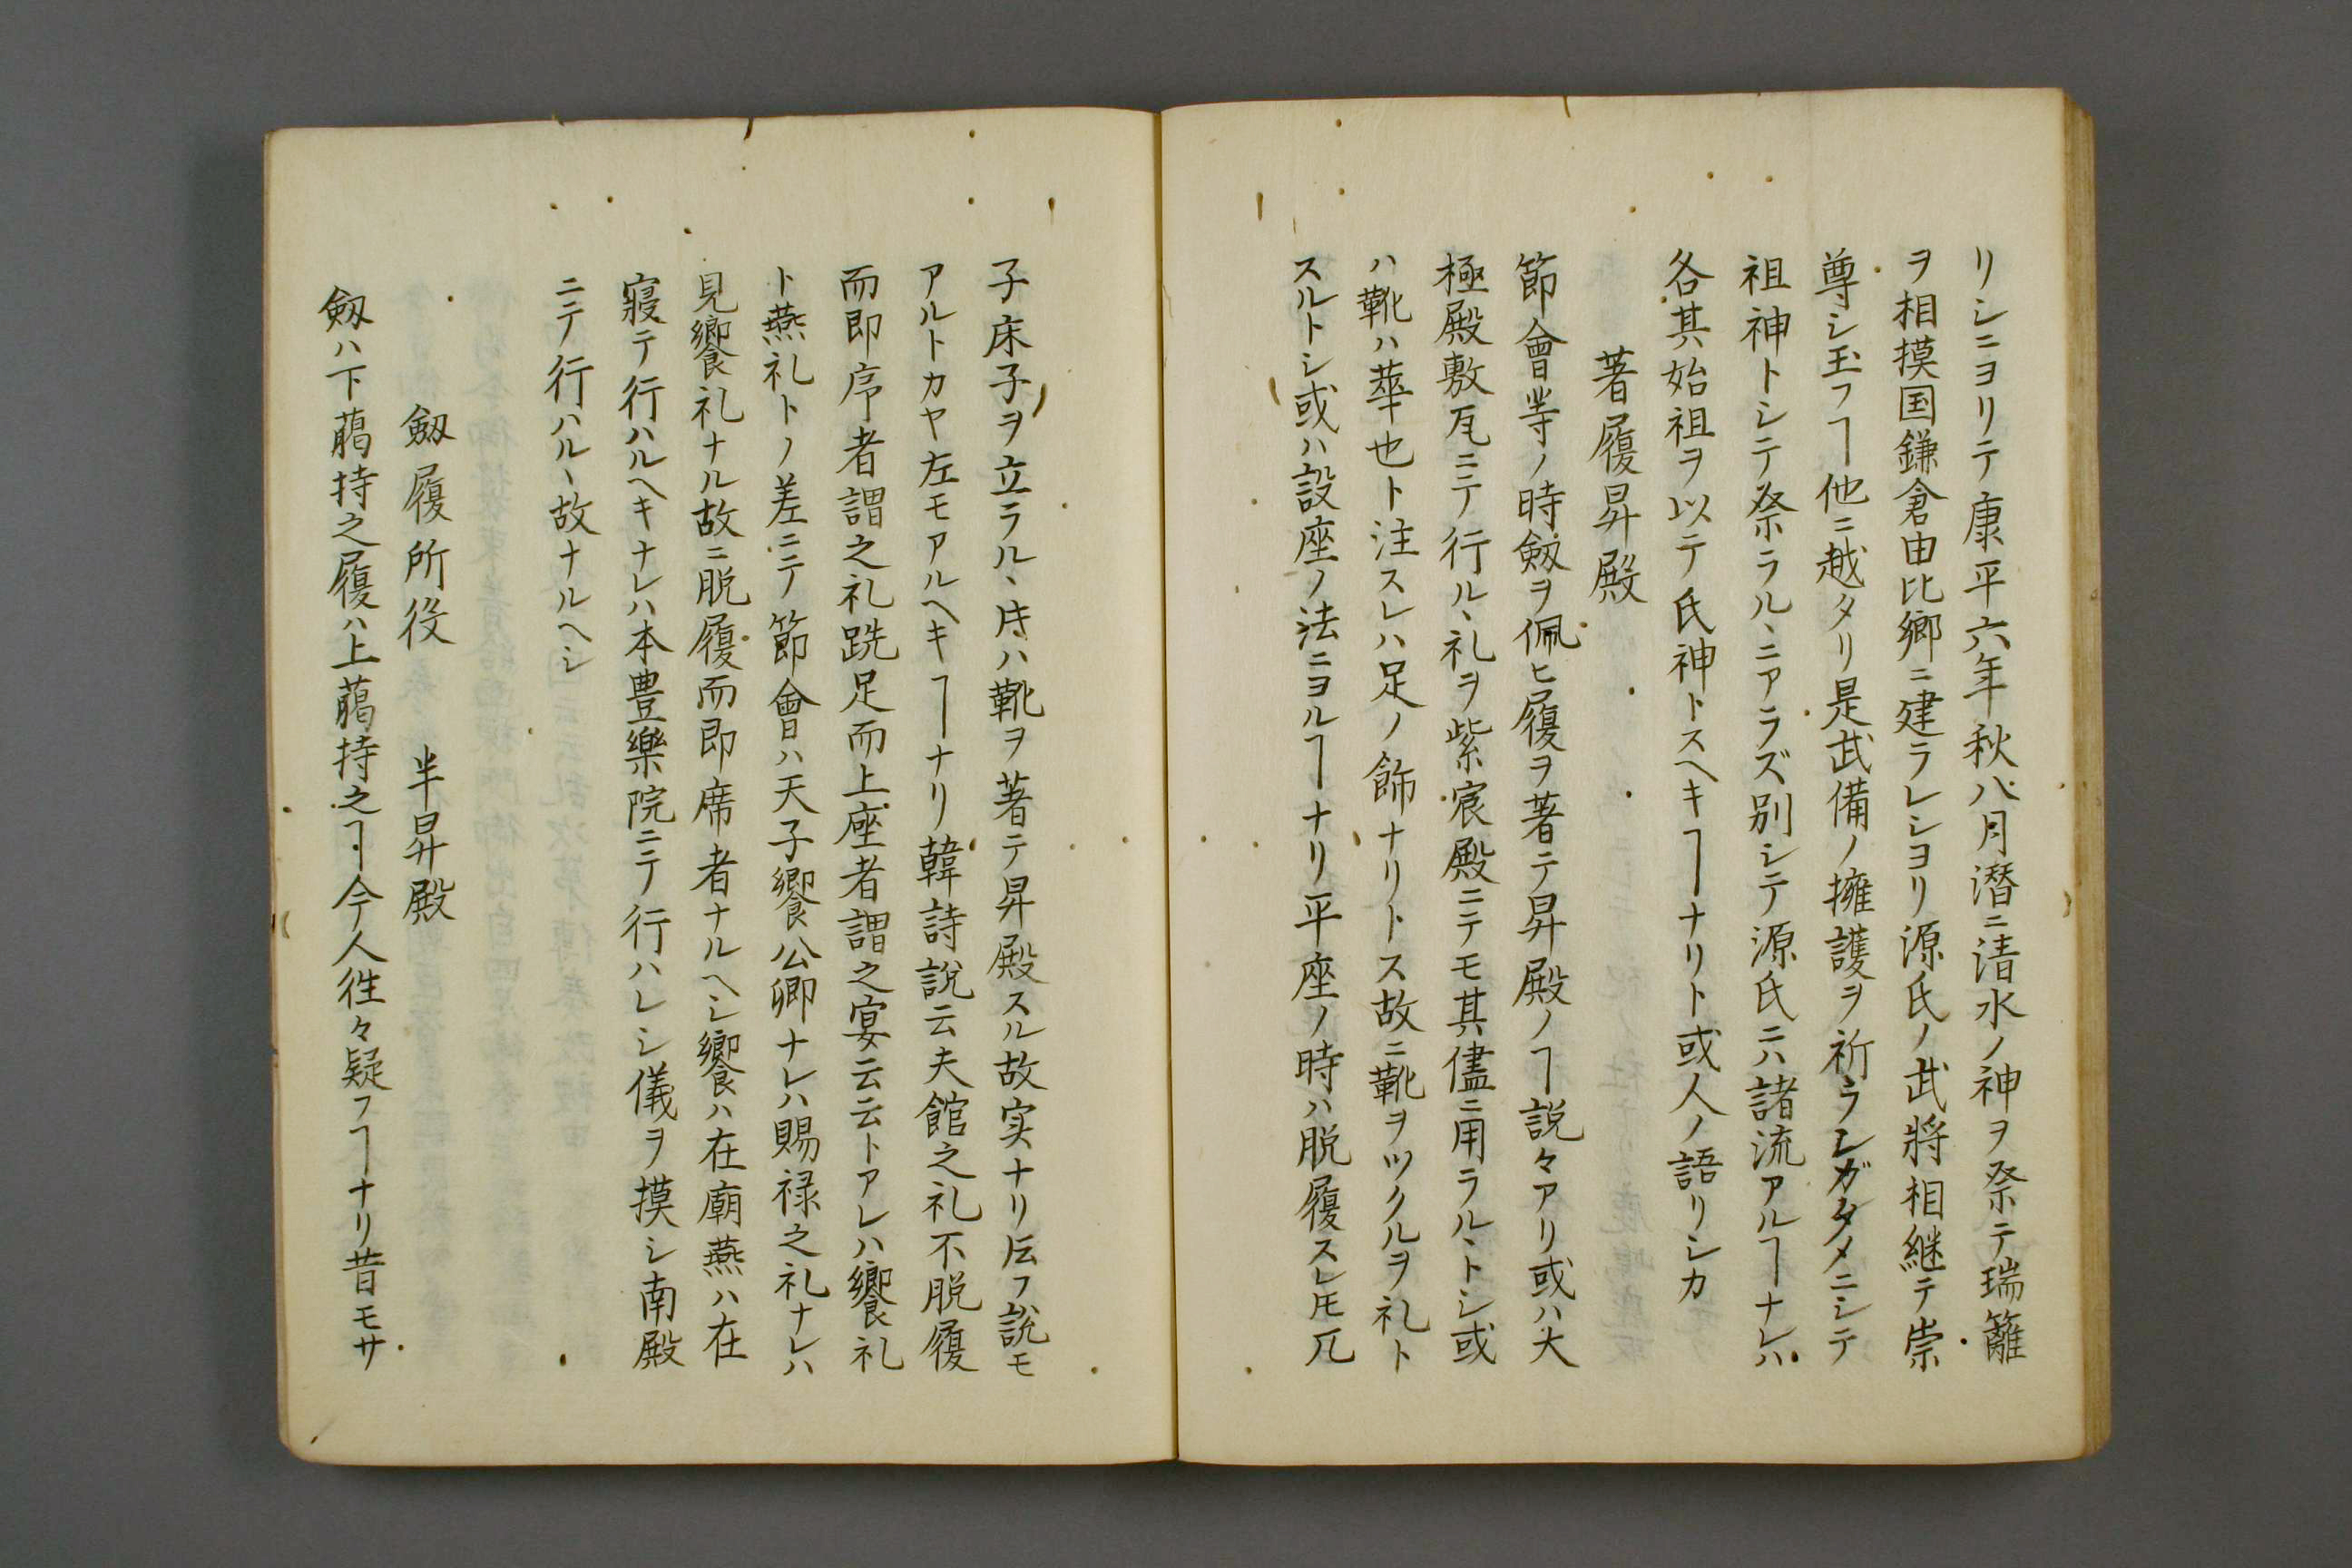 リシニヨリテ康平六年秋八月潛ニ清水ノ神ヲ祭テ瑞籬
ヲ相摸国鎌倉由比郷ニ建ラレシヨリ源氏ノ武將相継テ崇
尊シ玉フヿ他ニ越タリ是武備ノ擁護ヲ祈ラレガタメニシテ
祖神トシテ祭ラルヽニアラズ別シテ源氏ニハ諸流アルヿナレハ
各其始祖ヲ以テ氏神トスヘキヿナリト或人ノ語リシカ
著履昇殿
節會等ノ時劔ヲ佩ヒ履ヲ著テ昇殿ノヿ説々アリ或ハ大
極殿敷瓦ニテ行ルヽ礼ヲ紫宸殿ニテモ其儘ニ用ラルヽトシ或
ハ靴ハ華也ト注スレハ足ノ飾ナリトス故ニ靴ヲツクルヲ礼ト
スルトシ或ハ設座ノ法ニヨルヿナリ平座ノ時ハ脱履スレ𪜈兀
子床子ヲ立ラルヽ時ハ靴ヲ著テ昇殿スル故実ナリ云フ說モ
アルトカヤ左モアルヘキヿナリ韓詩說云夫館之礼不脱履
而即序者謂之礼跣足而上座者謂之宴云云トアレハ饗礼
ト燕礼トノ差ニテ節會ハ天子饗公卿ナレハ賜禄之礼ナレハ
見饗礼ナル故ニ脱履而即席者ナルヘシ饗ハ在廟燕ハ在
寝テ行ハルヘキナレハ本豊樂院ニテ行ハレシ儀ヲ摸シ南殿
ニテ行ハルヽ故ナルヘシ
劔履所役　半昇殿
劔ハ下﨟持之履ハ上﨟持之ヿ今人徃々疑フヿナリ昔モサ